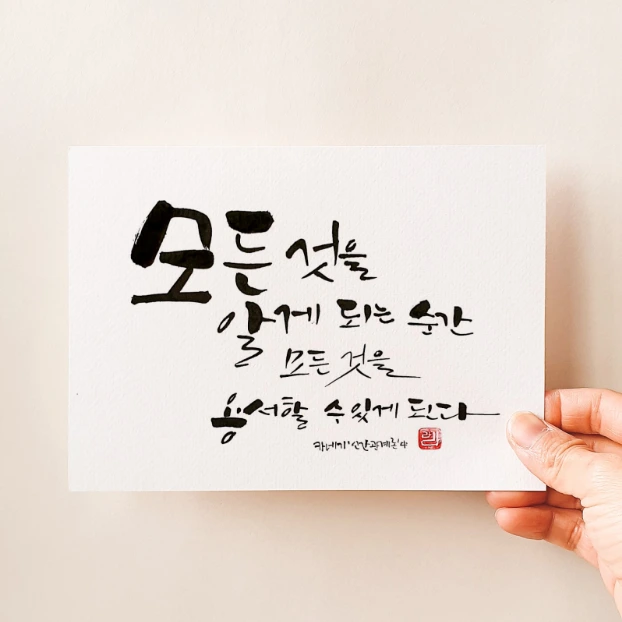 모든 것을
알게 되는 순간
모든 것을
용서할 수 있게 된다
카네기 '인간관계론' 中